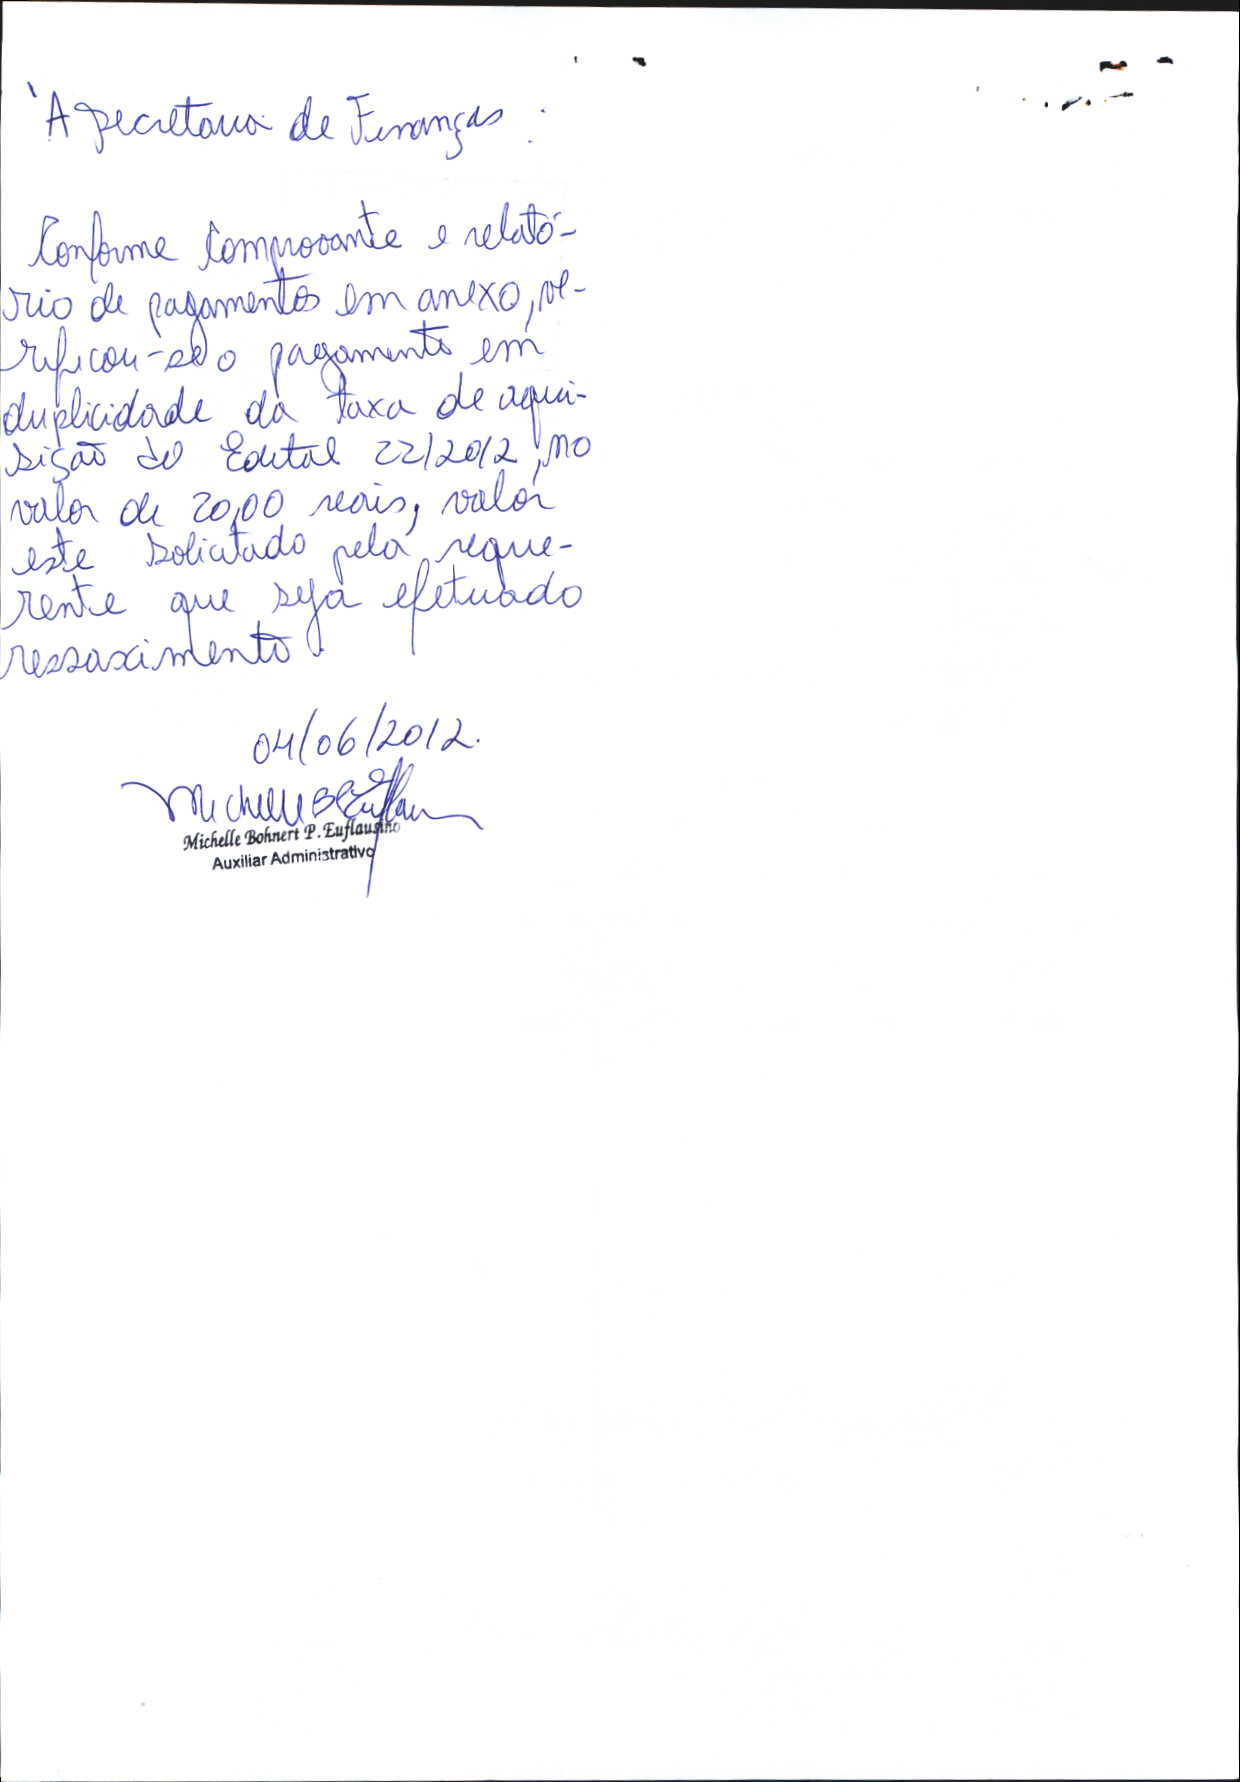 À Secretaria de Finanças:
Conforme comprovante e relató-
rio de pagamentos em anexo, ve-
rificou-se o pagamento em
duplicidade da taxa de aqui-
sição do Edital 22/2012, no
valor de 20,00 reais, valor
este solicitado pela reque-
rente que seja efetuado
ressarcimento.
04/06/2012.
Michelle B P Euflau
Michelle Bohnert P. Euflausino
Auxiliar Administrativo